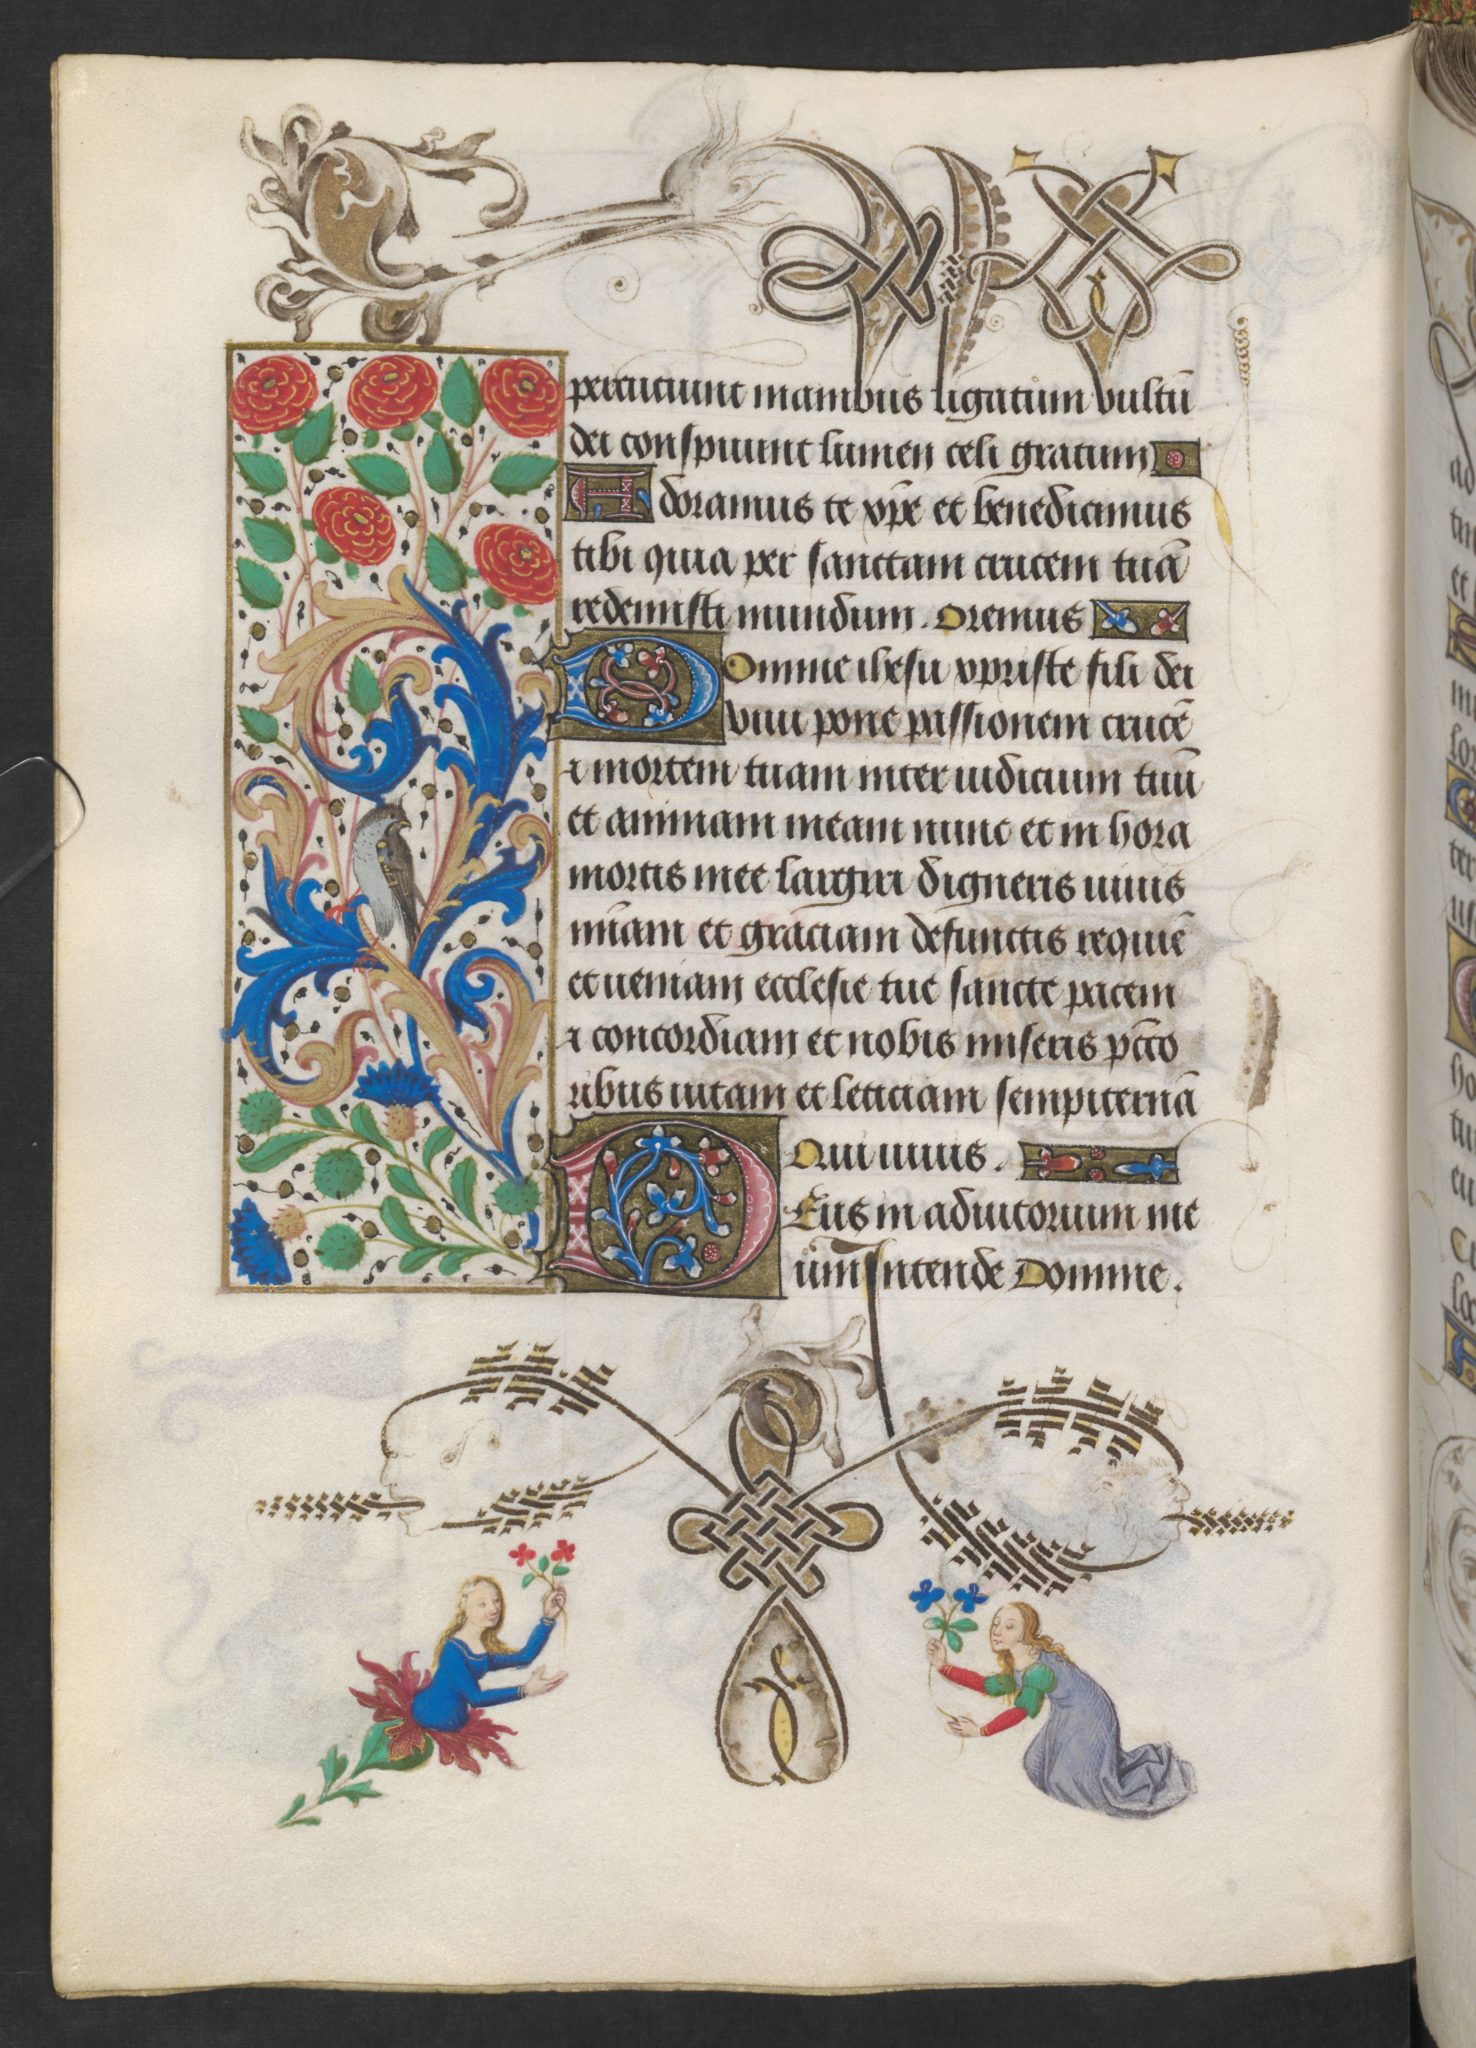 percuciunt manibus ligatum vultū
dei conspuunt lumen celi gratum
Adoramus te xp̄e et benedicimus
tibi quia per sanctam crucem tuā
redemisti mundum. Oremus
Domine ihesu xpriste fili dei
viui pone passionem crucē
⁊ mortem tuam inter iudicium tuū
et animam meam nunc et in hora
mortis mee largiri digneris uiuis
mīam et gr̄aciam defunctis requiē
et ueniam ecclesie tue sancte pacem
⁊ concordiam et nobis miseris pc̄to
ribus uitam et leticiam sempiternā
Qui uiuis.
DEus in adiutorium me
um Intende Domine.